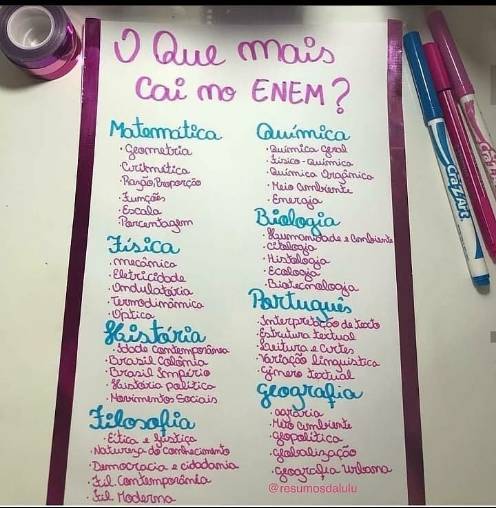 O Que mais
Cai no ENEM?
Matemática
· Geometria
· Aritmética
· Razão, Proporção
· Funções
· Escala
· Porcentagem
Física
· mecânica
· Eletricidade
· Ondulatória
· Termodinâmica
· Óptica
História
· Idade Contemporânea
· Brasil Colônia
· Brasil Império
· História política
· Movimentos Sociais
Filosofia
· Ética e Justiça
· Natureza do Conhecimento
· Democracia e cidadania
· Fil. Contemporânea
· Fil. Moderna
Química
· Química geral
· Físico-química
· Química Orgânica
· Meio ambiente
· Energia
Biologia
· Humanidade e ambiente
· Citologia
· Histologia
· Ecologia
· Biotecnologia
Português
· Interpretação de texto
· Estrutura textual
· Leitura e Artes
· Variação linguística
· gênero textual
geografia
· agrária
· Meio ambiente
· geopolítica
· globalização
· geografia urbana
@resumosdalulu
CRAZART